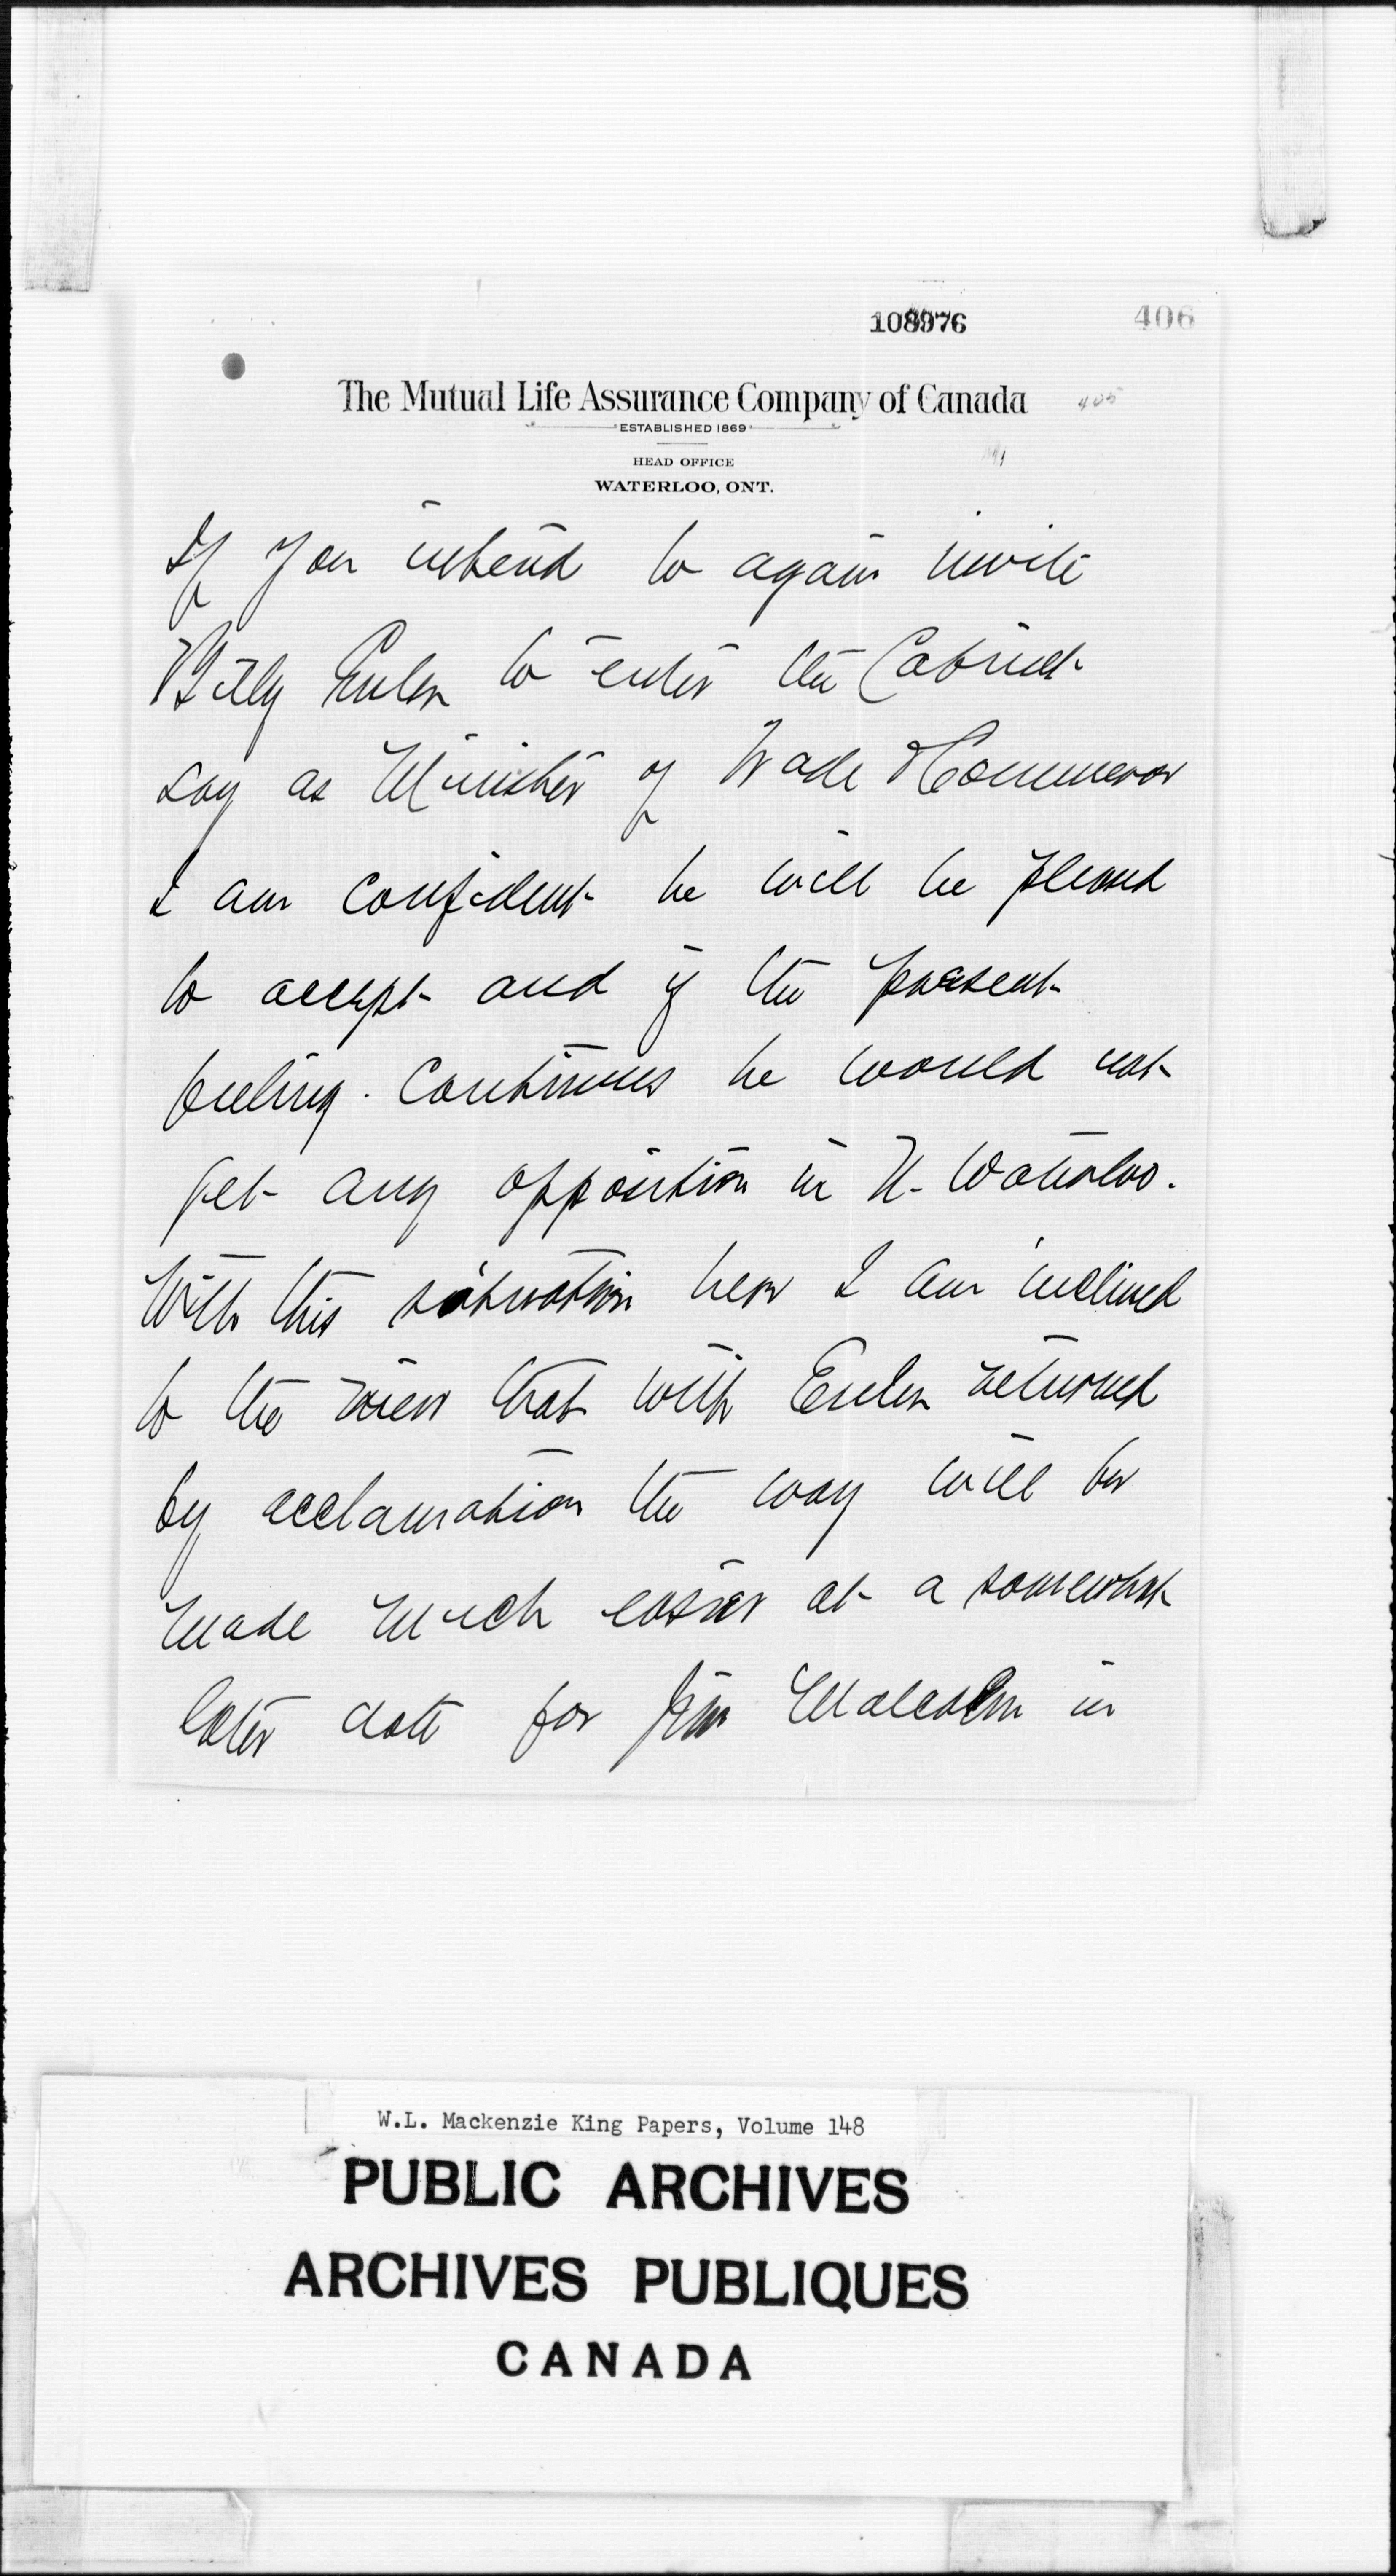 108976
406
The Mutual Life Assurance Company of Canada
405
ESTABLISHED 1869
HEAD OFFICE
WATERLOO, ONT.
If you intend to again invite
Billy Euler to enter the Cabinet
say as Minister of Trade & Commerce
I am confident he will be pleased
to accept and if the present
feeling. continues he would not
get any opposition in N. Waterloo.
With this situation here I am inclined
to the view that with Euler returned
by acclamation the way will be
made much easier at a somewhat
later date for Jim Malcolm in
W.L. Mackenzie King Papers, Volume 148
PUBLIC ARCHIVES
ARCHIVES PUBLIQUES
CANADA